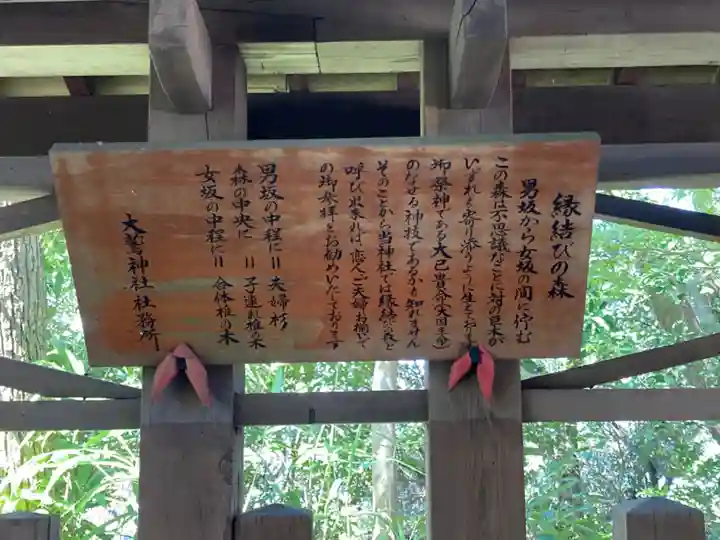 縁結びの森
男坂から女坂の間に佇む
この森は不思議なことに対の巨木が
いずれも寄り添うように生えており
御祭神である大己貴命(大国主命)
のなせる神技であるかも知れません
そのことから当神社では縁結びの森と
呼び出来れば、恋人ご夫婦お揃いで
の御参拝をお勧めいたしております
男坂の中程に〃夫婦杉
森の中央に〃子連れ椎の木
女坂の中程に〃合体椎の木
大鷲神社社務所